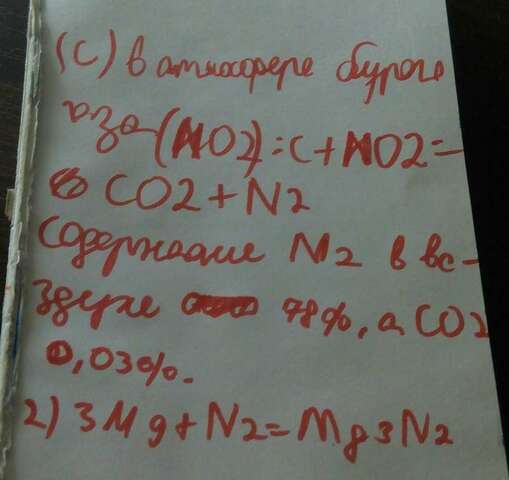 (C) в атмосфере бурого
газа (NO2): C + NO2 =
CO2 + N2
Содержание N2 в во-
здухе 78%, а CO2
0,03%.
2) 3Mg + N2 = Mg3N2